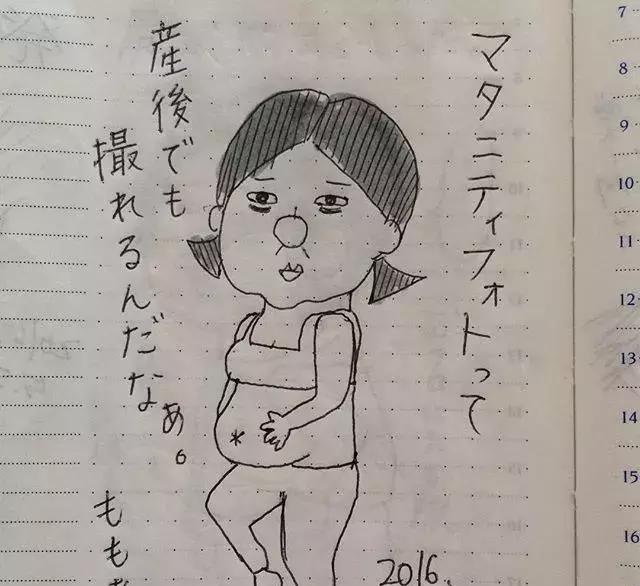 マタニティフォトって
産後でも
撮れるんだな
あ。
もも
2016.
7
8
9
10
11
12
13
14
15
16